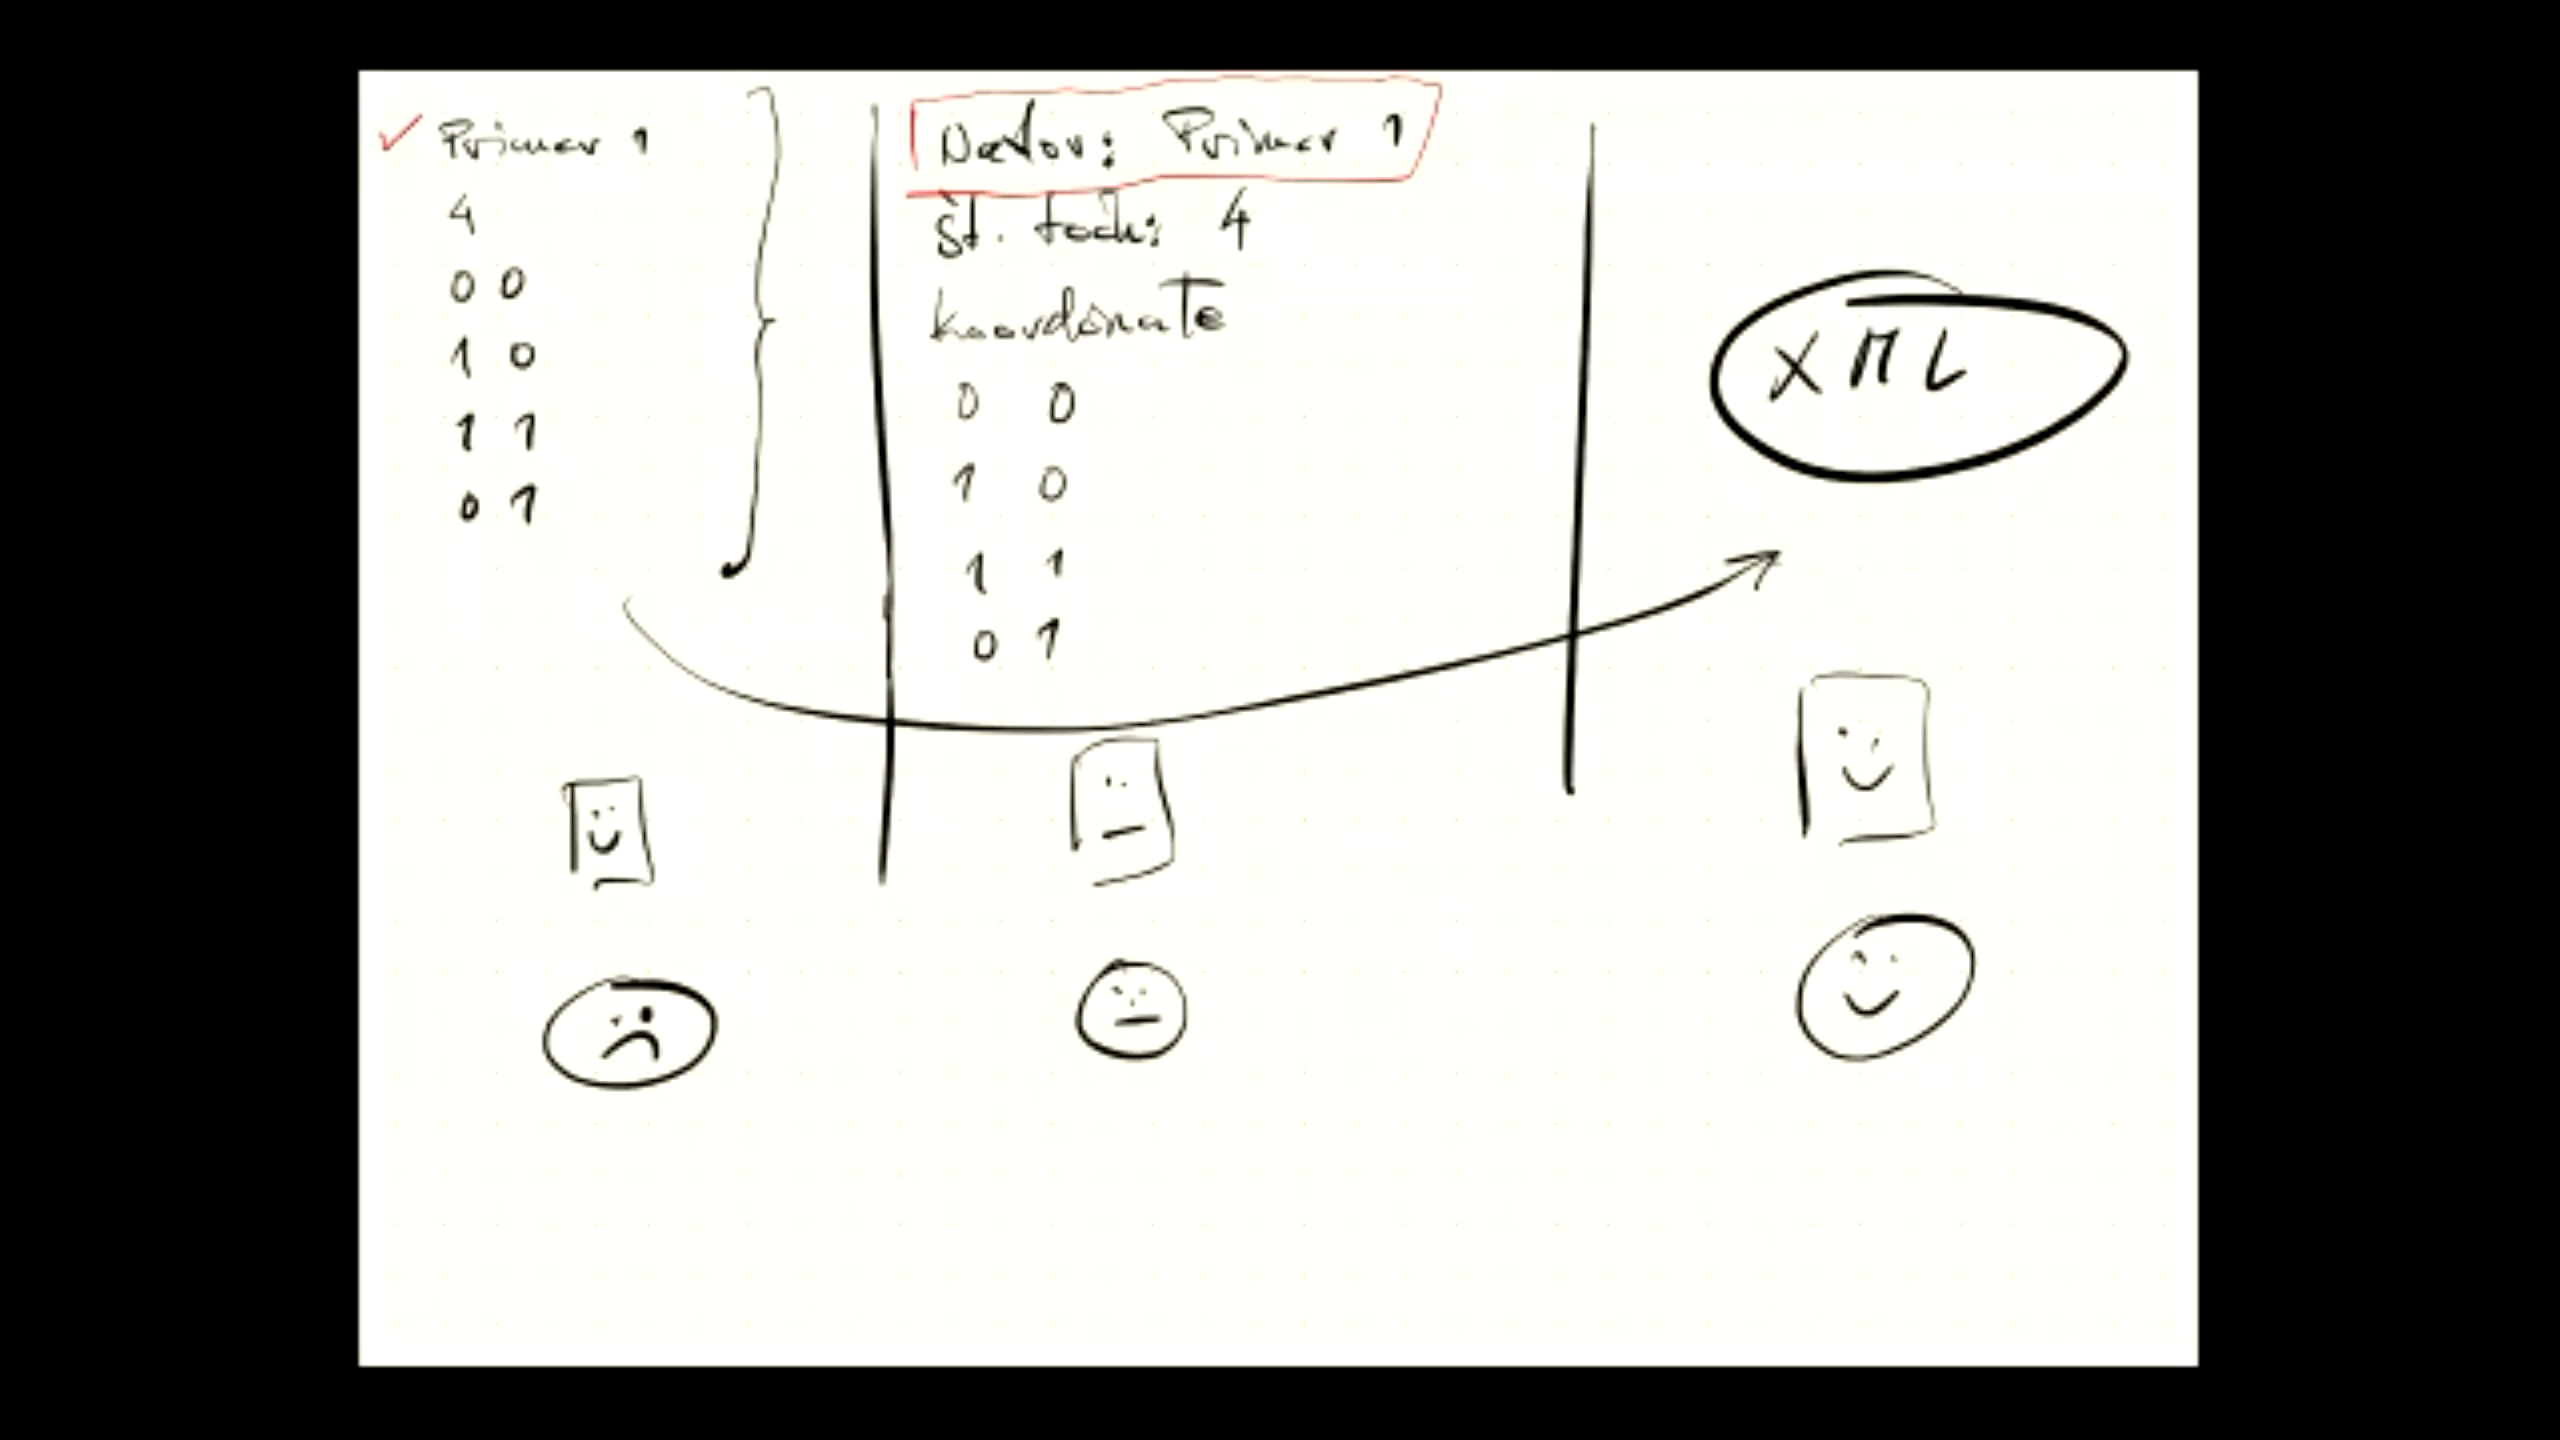 Primer 1
4
0 0
1 0
1 1
0 1
Primer 1
št. točk: 4
koordinate
0 0
1 0
1 1
0 1
XML